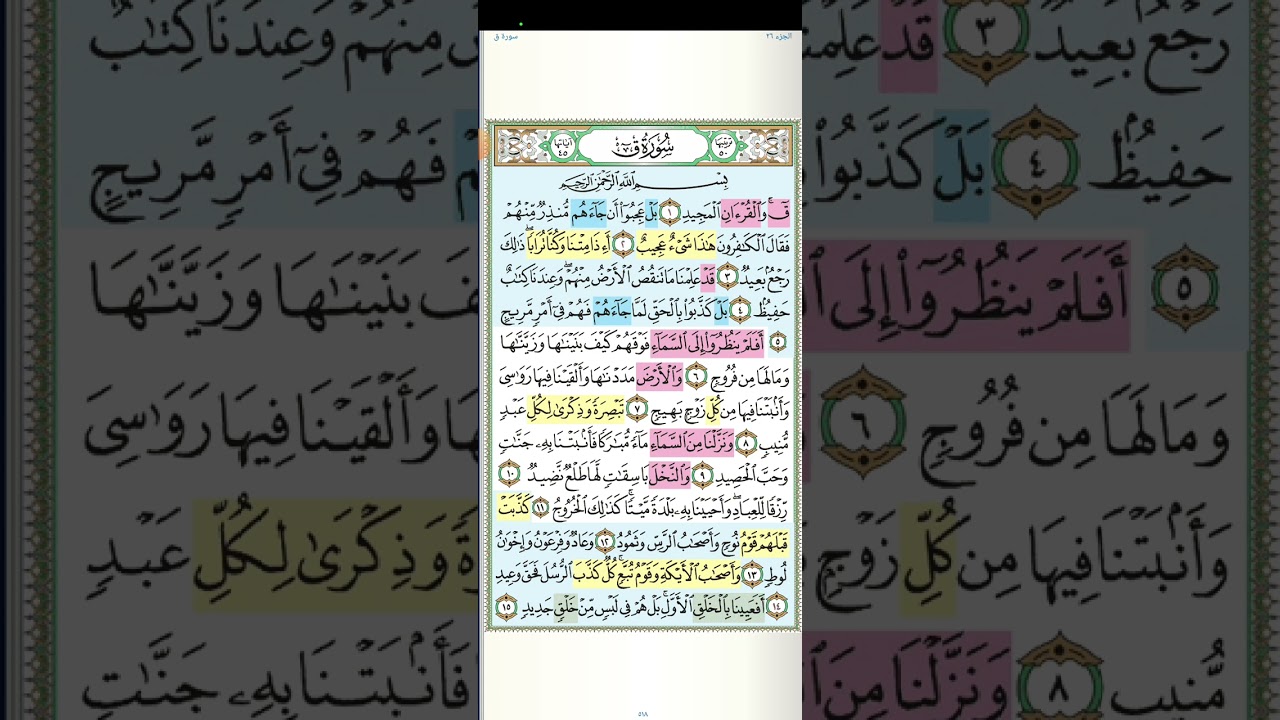 الجزء ٢٦
سورة ق
ترتيبها ٥٠
سُورَةُ ق
آياتها ٤٥
بِسْمِ ٱللَّهِ ٱلرَّحْمَٰنِ ٱلرَّحِيمِ
قٓۚ وَٱلْقُرْءَانِ ٱلْمَجِيدِ ١ بَلْ عَجِبُوٓا۟ أَن جَآءَهُم مُّنذِرٌ مِّنْهُمْ
فَقَالَ ٱلْكَٰفِرُونَ هَٰذَا شَىْءٌ عَجِيبٌ ٢ أَءِذَا مِتْنَا وَكُنَّا تُرَابًاۖ ذَٰلِكَ
رَجْعٌۢ بَعِيدٌ ٣ قَدْ عَلِمْنَا مَا تَنقُصُ ٱلْأَرْضُ مِنْهُمْۖ وَعِندَنَا كِتَٰبٌ
حَفِيظٌۢ ٤ بَلْ كَذَّبُوا۟ بِٱلْحَقِّ لَمَّا جَآءَهُمْ فَهُمْ فِىٓ أَمْرٍ مَّرِيجٍ
٥ أَفَلَمْ يَنظُرُوٓا۟ إِلَى ٱلسَّمَآءِ فَوْقَهُمْ كَيْفَ بَنَيْنَٰهَا وَزَيَّنَّٰهَا
وَمَا لَهَا مِن فُرُوجٍ ٦ وَٱلْأَرْضَ مَدَدْنَٰهَا وَأَلْقَيْنَا فِيهَا رَوَٰسِىَ
وَأَنۢبَتْنَا فِيهَا مِن كُلِّ زَوْجٍۭ بَهِيجٍ ٧ تَبْصِرَةً وَذِكْرَىٰ لِكُلِّ عَبْدٍ
مُّنِيبٍ ٨ وَنَزَّلْنَا مِنَ ٱلسَّمَآءِ مَآءً مُّبَٰرَكًا فَأَنۢبَتْنَا بِهِۦ جَنَّٰتٍ
وَحَبَّ ٱلْحَصِيدِ ٩ وَٱلنَّخْلَ بَاسِقَٰتٍ لَّهَا طَلْعٌ نَّضِيدٌ ١٠
رِّزْقًا لِّلْعِبَادِۖ وَأَحْيَيْنَا بِهِۦ بَلْدَةً مَّيْتًاۚ كَذَٰلِكَ ٱلْخُرُوجُ ١١ كَذَّبَتْ
قَبْلَهُمْ قَوْمُ نُوحٍ وَأَصْحَٰبُ ٱلرَّسِّ وَثَمُودُ ١٢ وَعَادٌ وَفِرْعَوْنُ وَإِخْوَٰنُ
لُوطٍ ١٣ وَأَصْحَٰبُ ٱلْأَيْكَةِ وَقَوْمُ تُبَّعٍۚ كُلٌّ كَذَّبَ ٱلرُّسُلَ فَحَقَّ وَعِيدِ
١٤ أَفَعَيِينَا بِٱلْخَلْقِ ٱلْأَوَّلِۚ بَلْ هُمْ فِى لَبْسٍ مِّنْ خَلْقٍ جَدِيدٍ ١٥
٥١٨